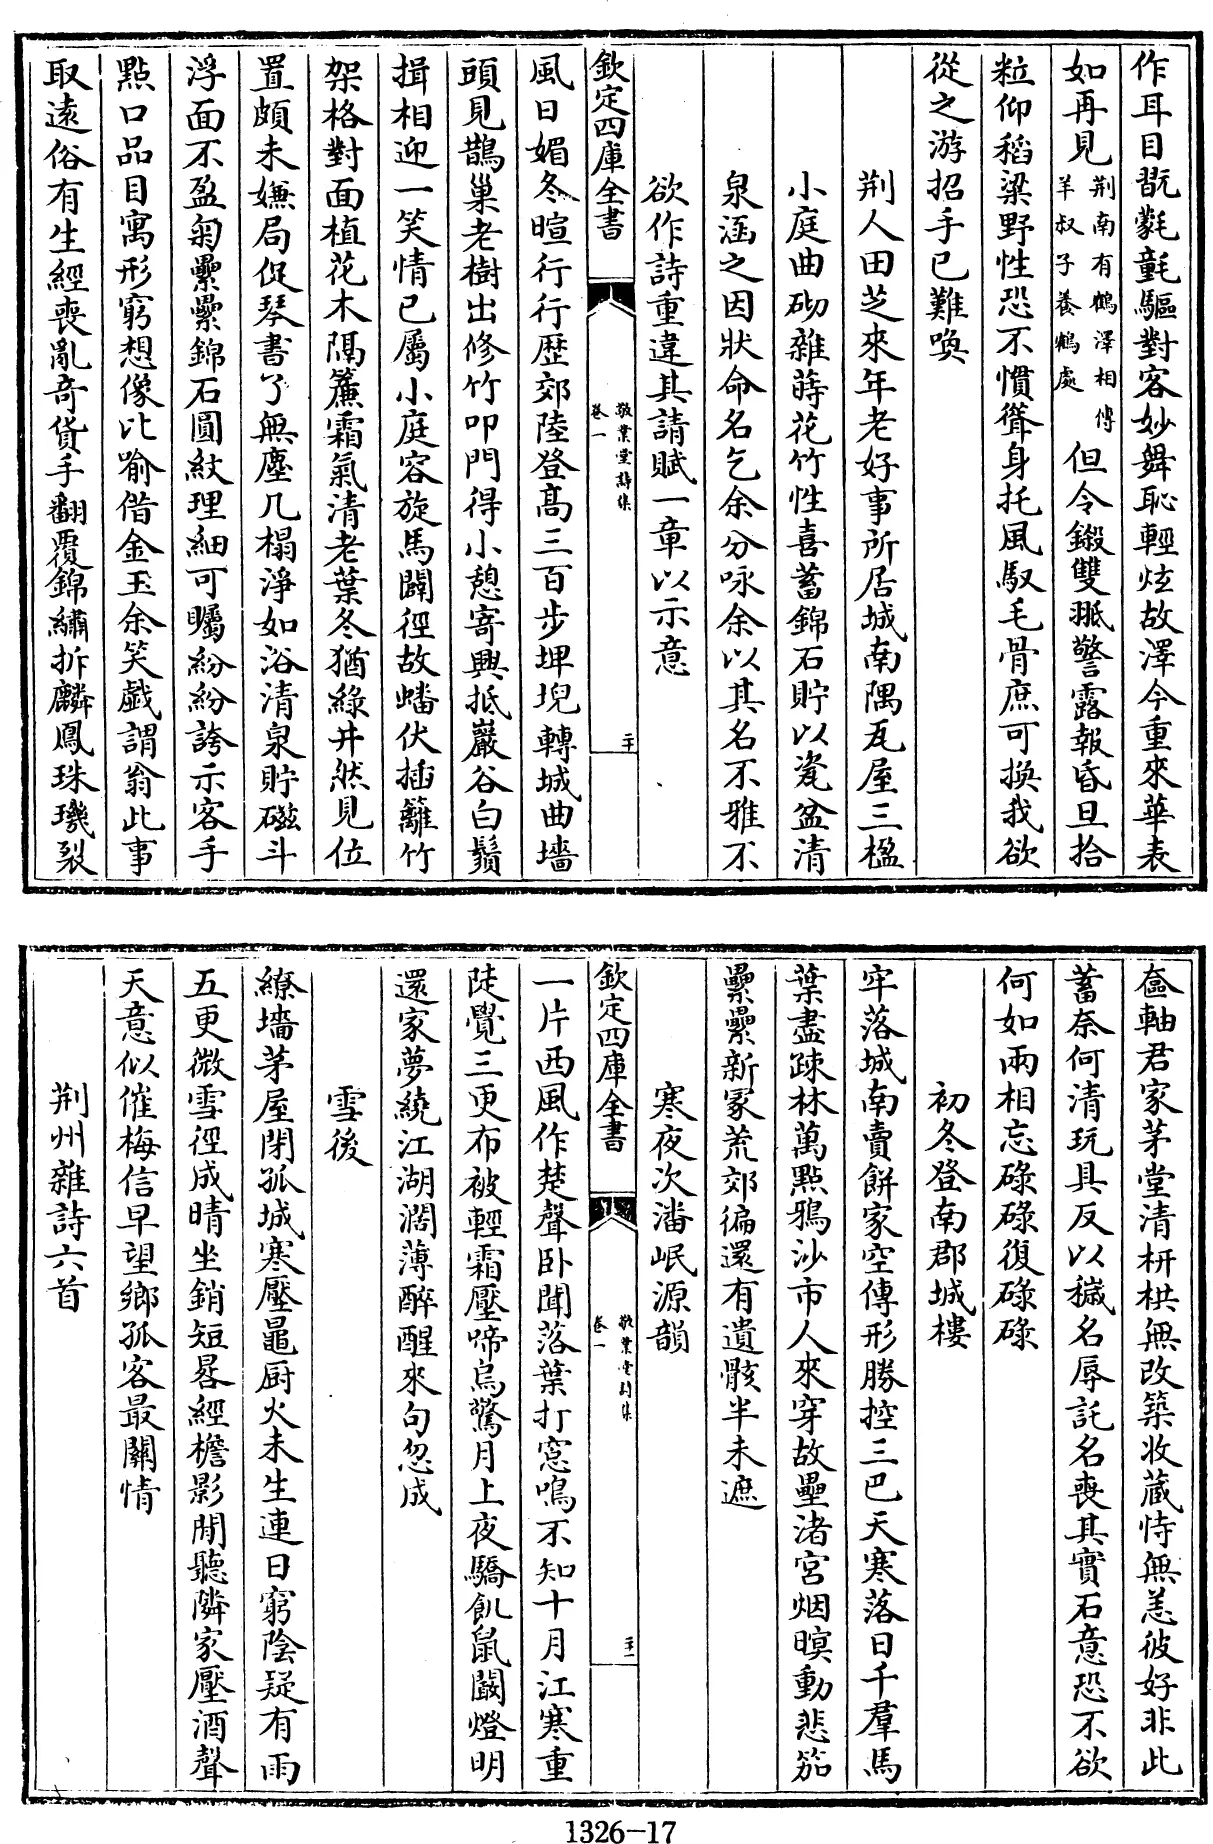 作耳目翫氋氃驅對客妙舞恥輕炫故澤今重來華表
如再見荆南有鶴澤相傳羊叔子養鶴處但令鎩雙翄警露報昏旦拾
粒仰稻粱野性恐不慣聳身托風馭毛骨庶可換我欲
從之游招手已難喚
荆人田芝來年老好事所居城南隅瓦屋三楹
小庭曲砌雜蒔花竹性喜蓄錦石貯以瓷盆清
泉涵之因狀命名乞余分咏余以其名不雅不
欲作詩重違其請賦一章以示意
欽定四庫全書
敬業堂詩集
卷一
二十
風日媚冬暄行行歴郊陸登高三百步埤堄轉城曲墻
頭見鵲巢老樹出修竹叩門得小憩寄興抵巖谷白鬚
揖相迎一笑情已屬小庭容旋馬闢徑故蟠伏插籬竹
架格對面植花木隔簾霜氣清老葉冬猶緑井然見位
置頗未嫌局促琴書了無塵几榻淨如浴清泉貯磁斗
浮面不盈匊纍纍錦石圓紋理細可矚紛紛誇示客手
點口品目寓形窮想像比喻借金玉余笑戲謂翁此事
取遠俗有生經喪亂奇貨手翻覆錦繡拆麟鳳珠璣裂
奩軸君家茅堂清枅栱無改築收蔵恃無恙彼好非此
蓄奈何清玩具反以穢名辱託名喪其實石意恐不欲
何如兩相忘碌碌復碌碌
初冬登南郡城樓
牢落城南賣餅家空傳形勝控三巴天寒落日千羣馬
葉盡疎林萬點鴉沙市人來穿故壘渚宫烟暝動悲笳
纍纍新冢荒郊徧還有遺骸半未遮
寒夜次潘岷源韻
欽定四庫全書
敬業堂詩集
卷一
二十一
一片西風作楚聲卧聞落葉打窓鳴不知十月江寒重
陡覺三更布被輕霜壓啼烏驚月上夜驕飢鼠闞燈明
還家夢繞江湖濶薄醉醒來句忽成
雪後
繚墻茅屋閉孤城寒壓鼂厨火未生連日窮陰疑有雨
五更微雪徑成晴坐銷短晷經檐影閒聽隣家壓酒聲
天意似催梅信早望鄉孤客最關情
荆州雜詩六首
1326-17